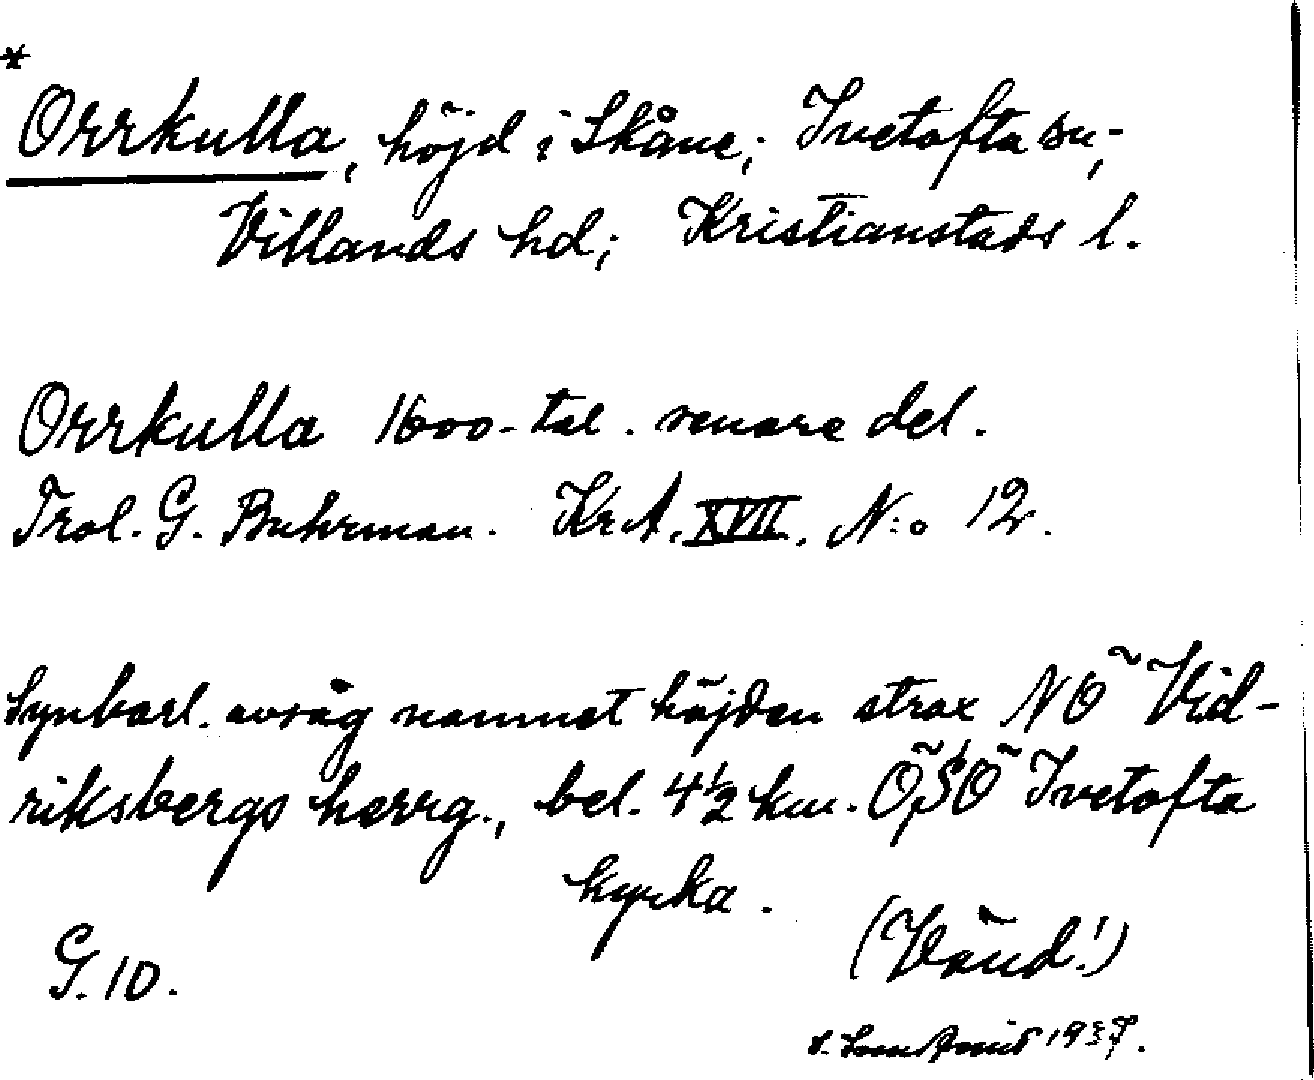 *
Orrkulla, höjd i Skåne; Ivetofta sn;
Villands hd; Kristianstads l.
Orrkulla 1600-tal. senare del.
Trol. G. Buhrman. KrA. XVII. N:o 12.
Synbarl. avsåg namnet höjden strax NO Vid-
riksbergs herrg., bel. 4 1/2 km. OSO Ivetofta
kyrka.
(Vänd!)
G. 10.
1937.